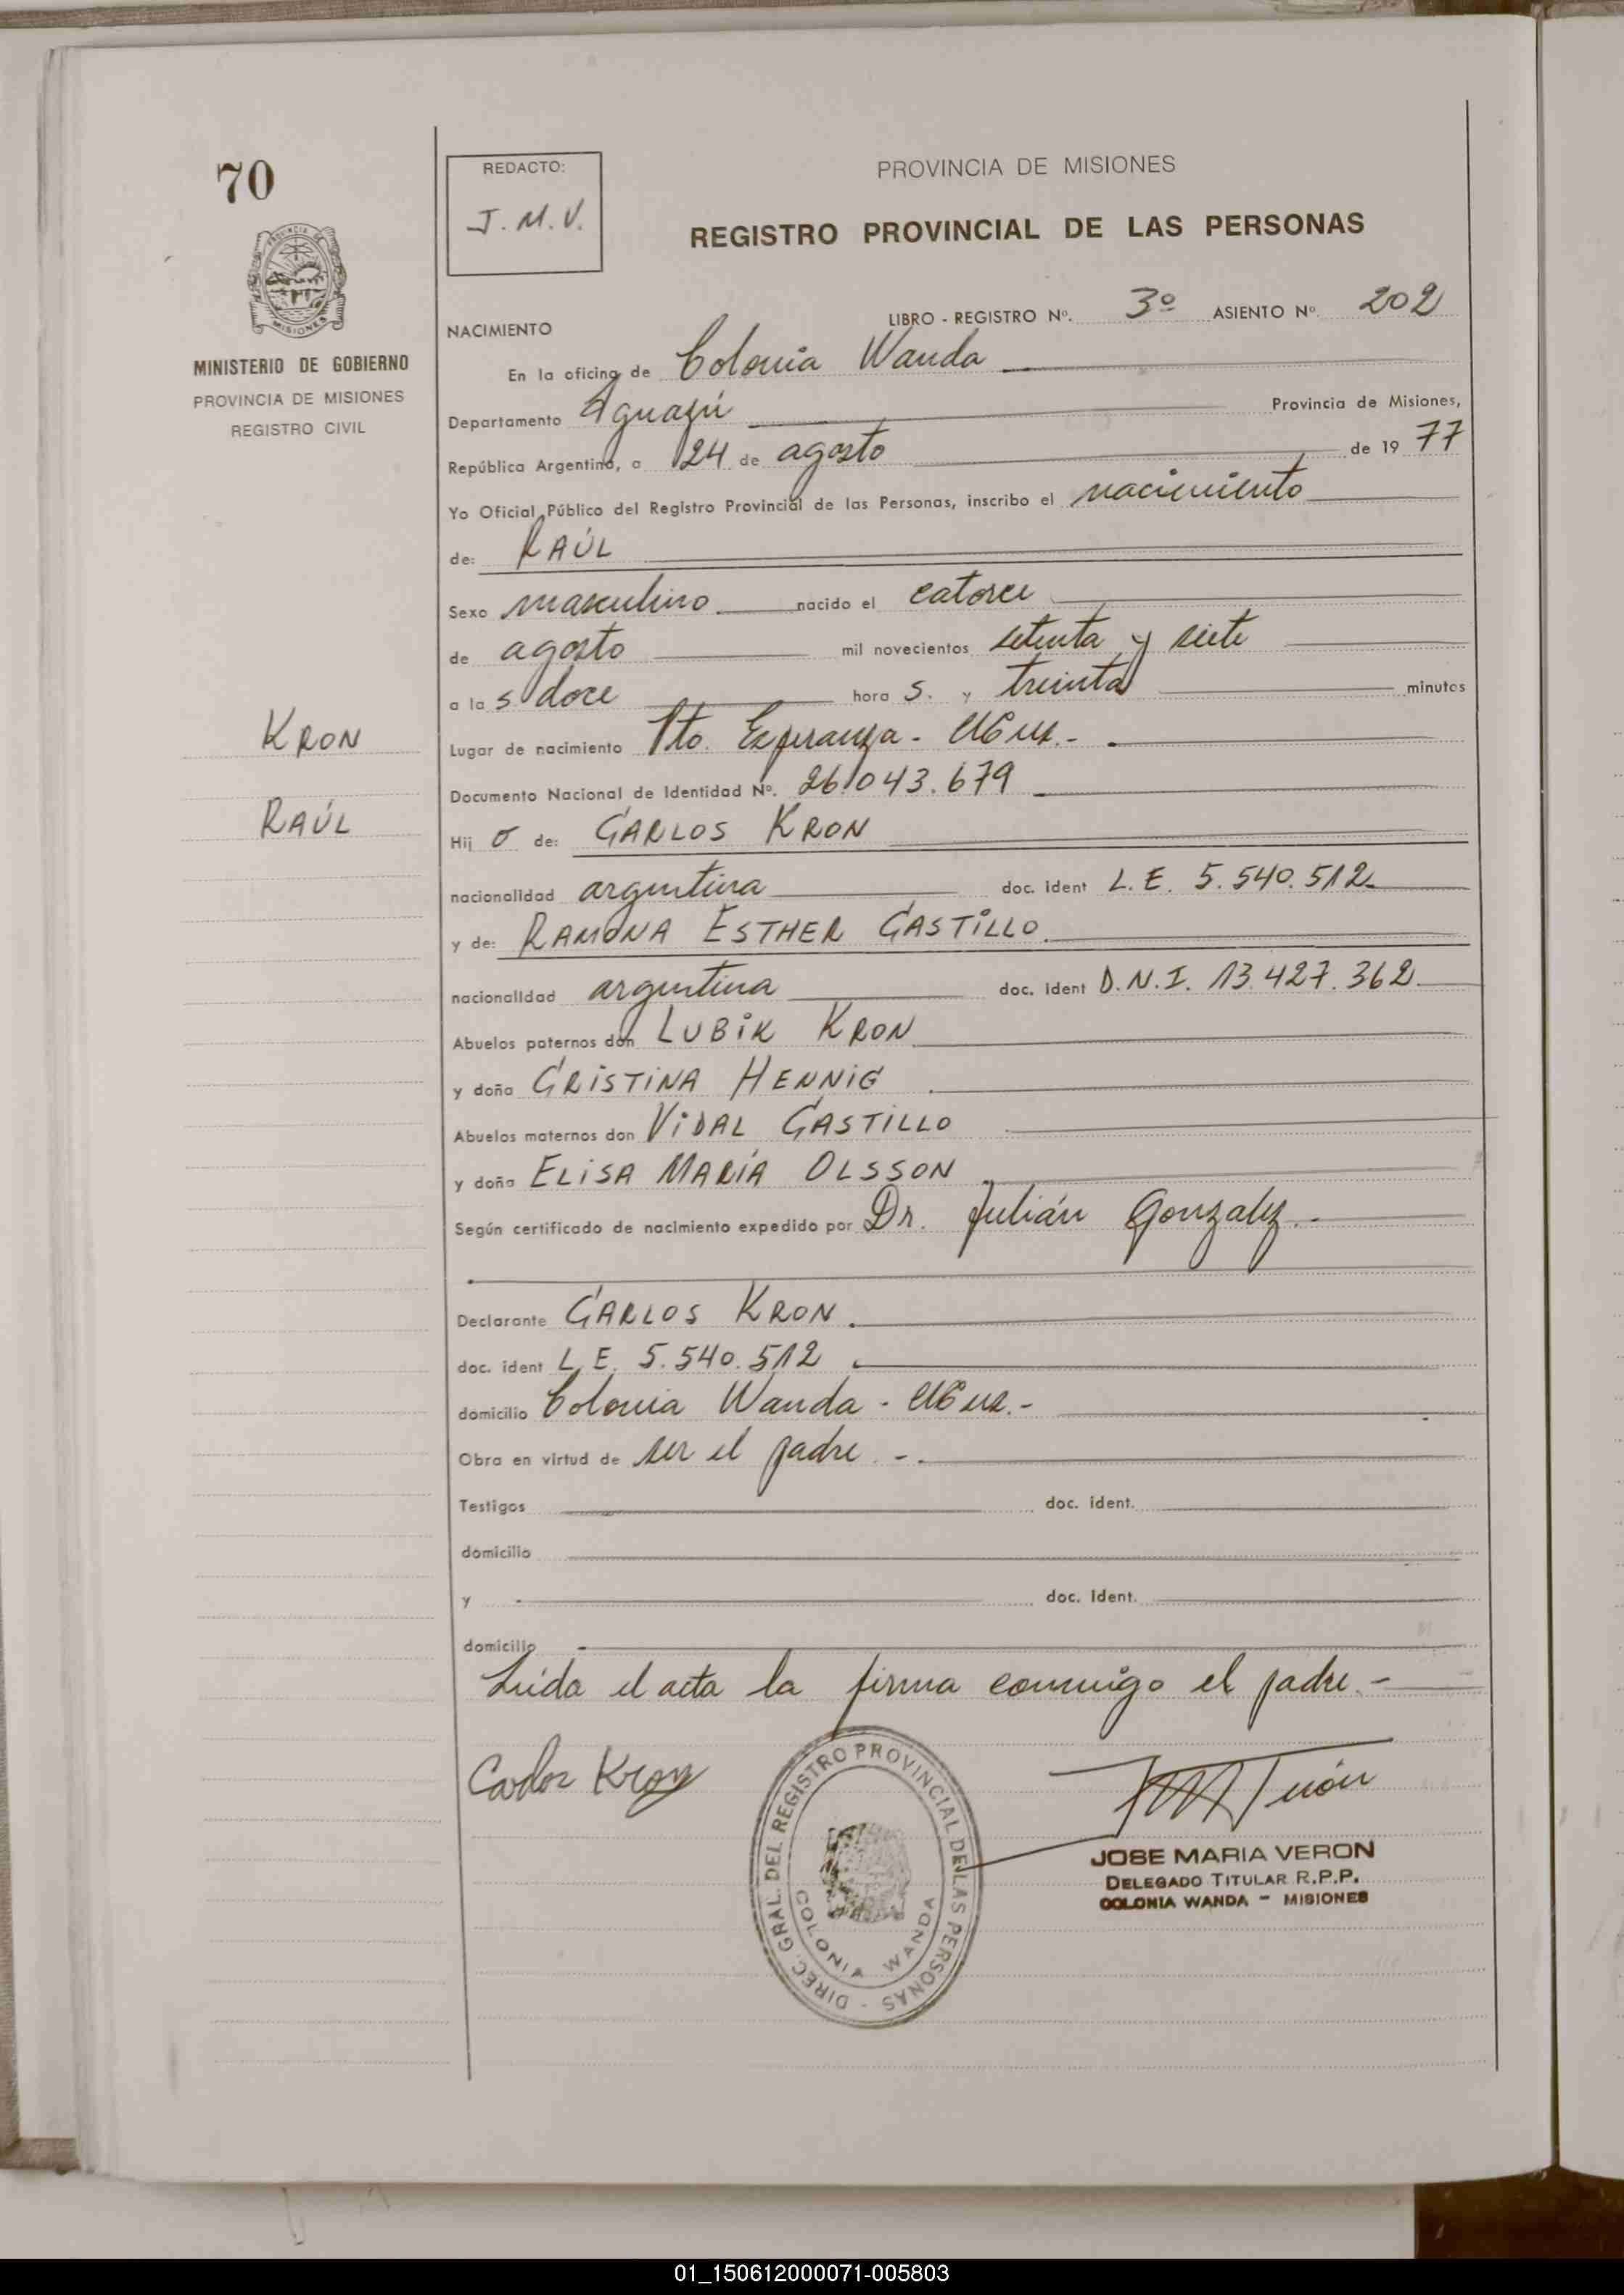 70
REDACTO:
J. M. V.
PROVINCIA DE MISIONES
REGISTRO PROVINCIAL DE LAS PERSONAS
PROVINCIA DE MISIONES
MINISTERIO DE GOBIERNO
PROVINCIA DE MISIONES
REGISTRO CIVIL
NACIMIENTO LIBRO - REGISTRO Nº. 3º ASIENTO Nº. 202
En la oficina de Colonia Wanda
Departamento Iguazú Provincia de Misiones,
República Argentina, a 24 de agosto de 1977
Yo Oficial Público del Registro Provincial de las Personas, inscribo el nacimiento
de: RAÚL
Sexo masculino nacido el catorce
de agosto mil novecientos setenta y siete
a las doce horas. y treinta minutos
KRON
Lugar de nacimiento Pto. Esperanza -
Documento Nacional de Identidad Nº. 26.043.679
RAÚL
Hijo de: CARLOS KRON
nacionalidad argentina doc. ident L. E. 5.540.512
y de: RAMONA ESTHER CASTILLO
nacionalidad argentina doc. ident D.N.I. 13.427.362
Abuelos paternos don LUBIK KRON
y doña CRISTINA HENNIG
Abuelos maternos don VIDAL CASTILLO
y doña ELISA MARÍA OLSSON
Según certificado de nacimiento expedido por Dr. Julián Gonzalez.-
Declarante CARLOS KRON.
doc. ident L. E. 5.540.512
domicilio Colonia Wanda -
Obra en virtud de ser el padre.-
Testigos doc. ident.
domicilio
y doc. ident.
domicilio
Leída el acta la firma conmigo el padre.-
Carlos Kron
DIREC. GRAL. DEL REGISTRO PROVINCIAL DE LAS PERSONAS -
COLONIA WANDA
JOSE MARIA VERON
DELEGADO TITULAR R.P.P.
COLONIA WANDA - MISIONES
01_150612000071-005803